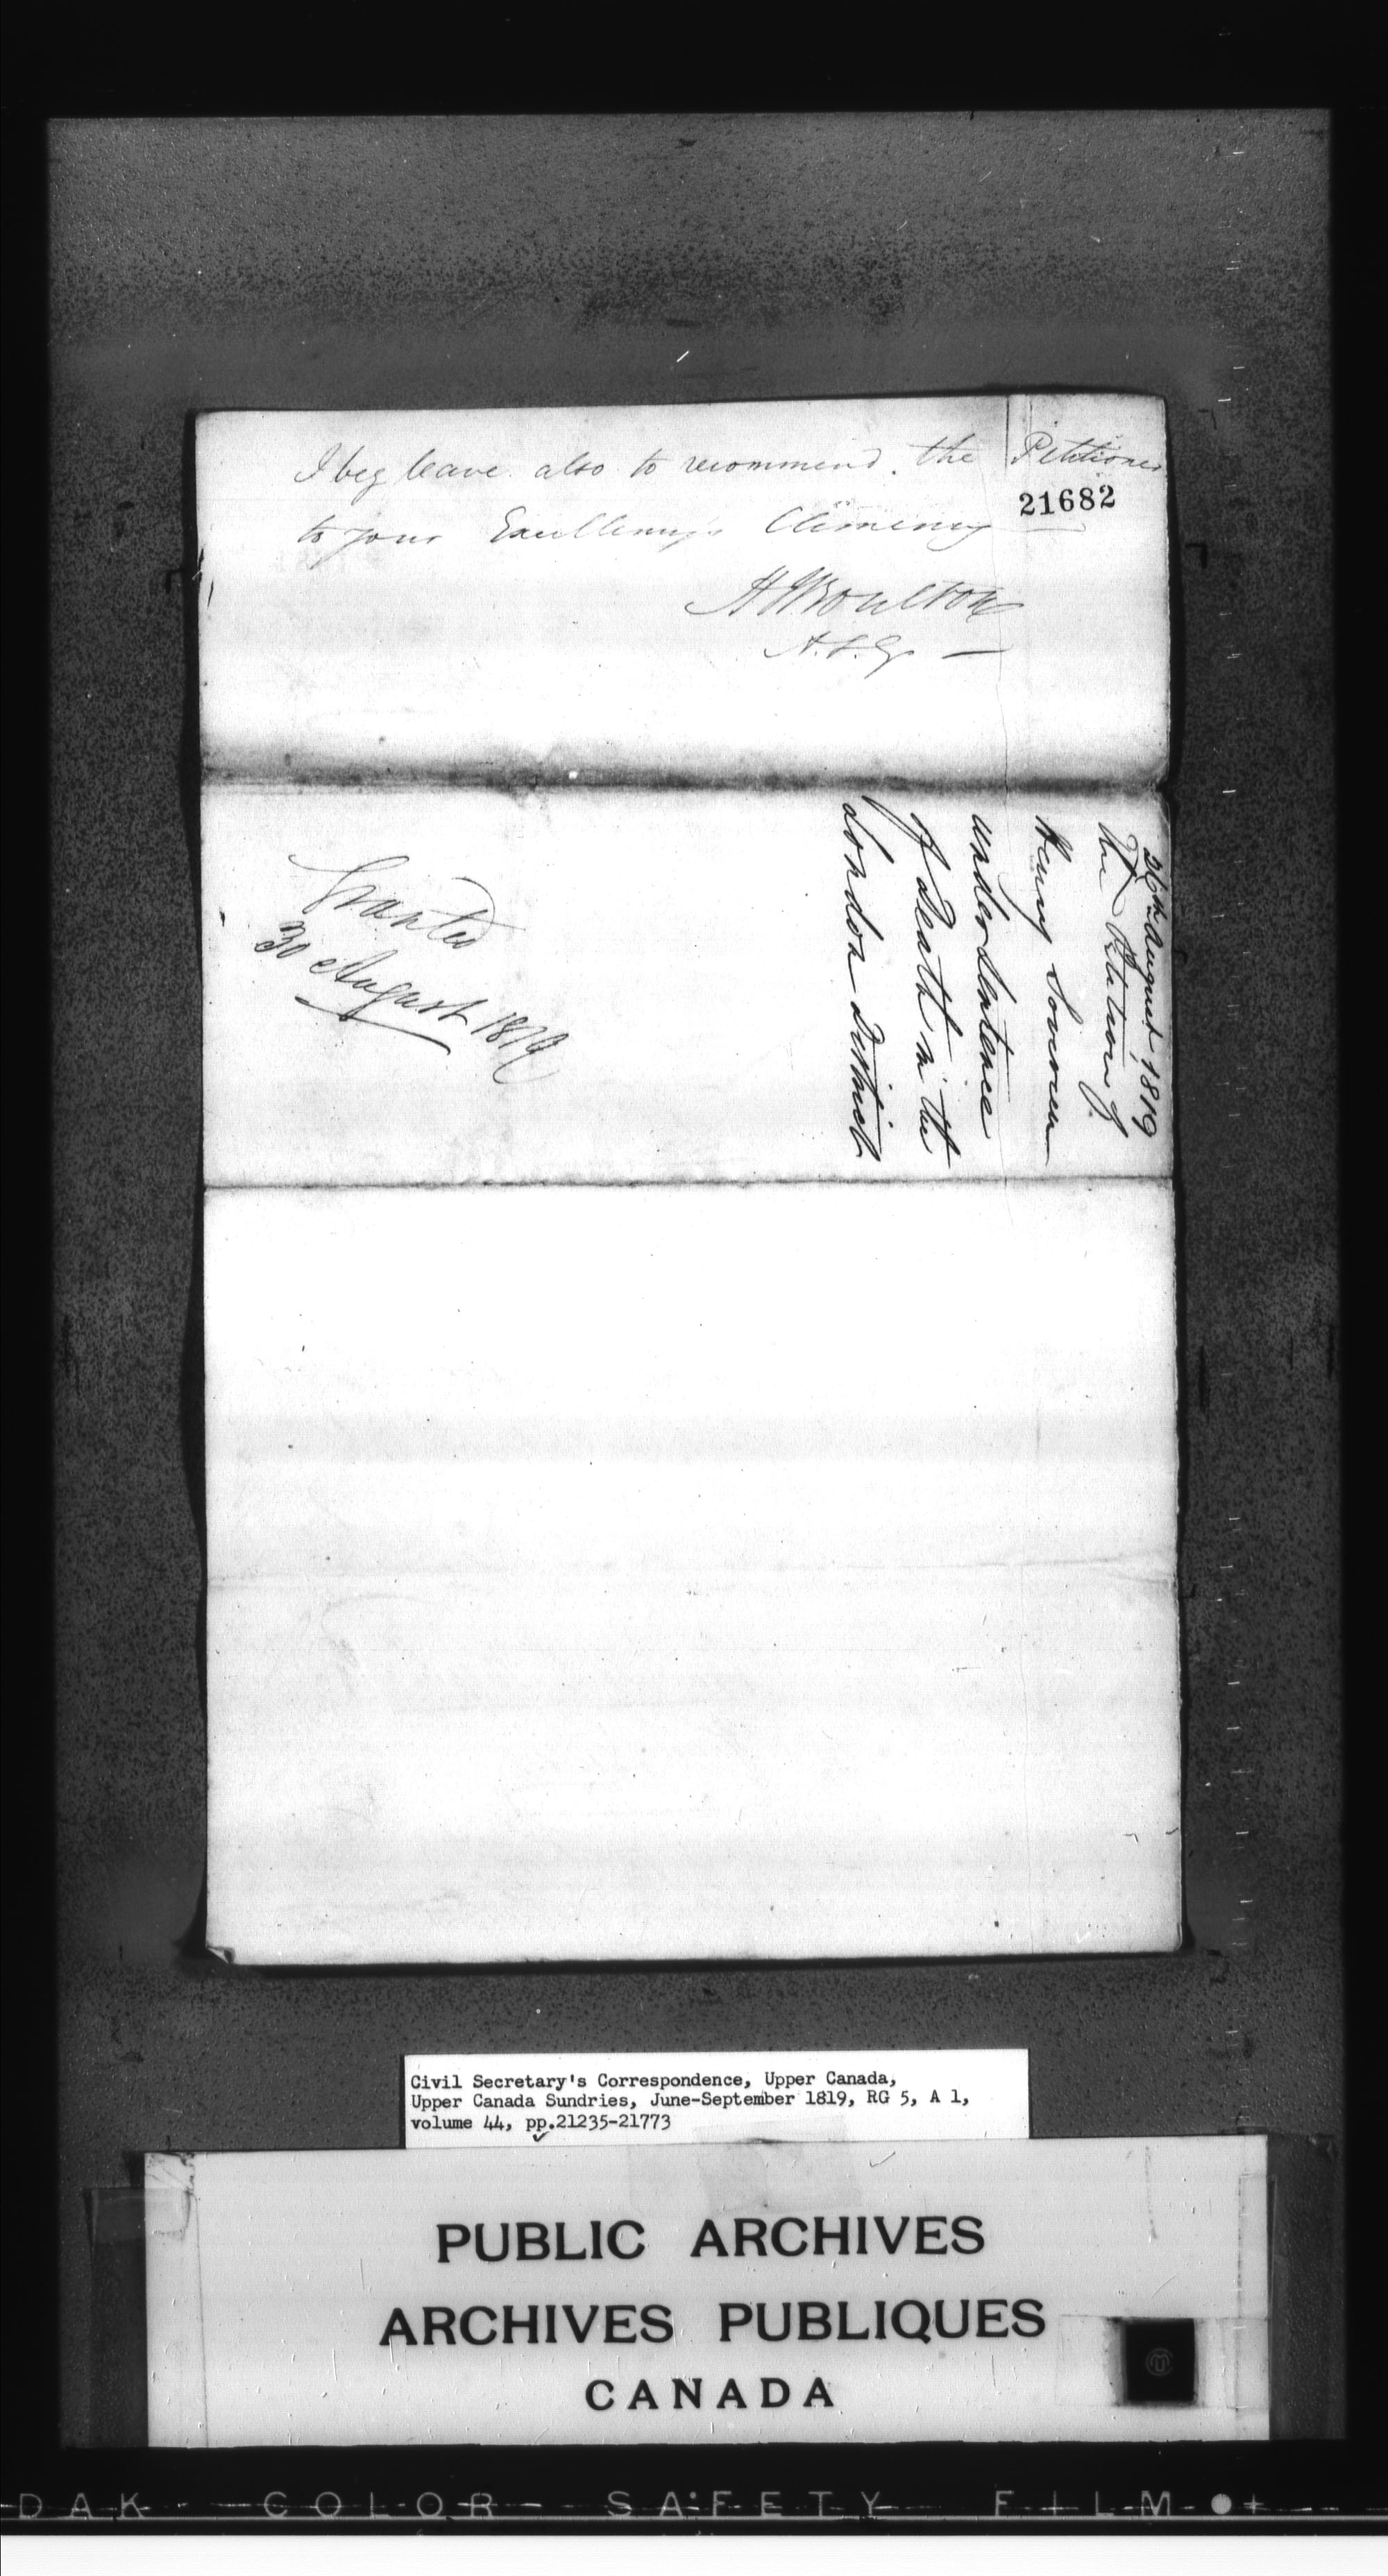 I beg leave also to recommend the Petitioner
21682
to your Excellency's Clemency
HJBoulton
A.S.G.
26th August 1819
The Petition of
Henry Sovereen
under Sentence
of Death in the
London District
Granted
30 August 1819
Civil Secretary's Correspondence, Upper Canada,
Upper Canada Sundries, June-September 1819, RG 5, A 1,
volume 44, pp.21235-21773
PUBLIC ARCHIVES
ARCHIVES PUBLIQUES
CANADA
DAK COLOR SAFETY FILM